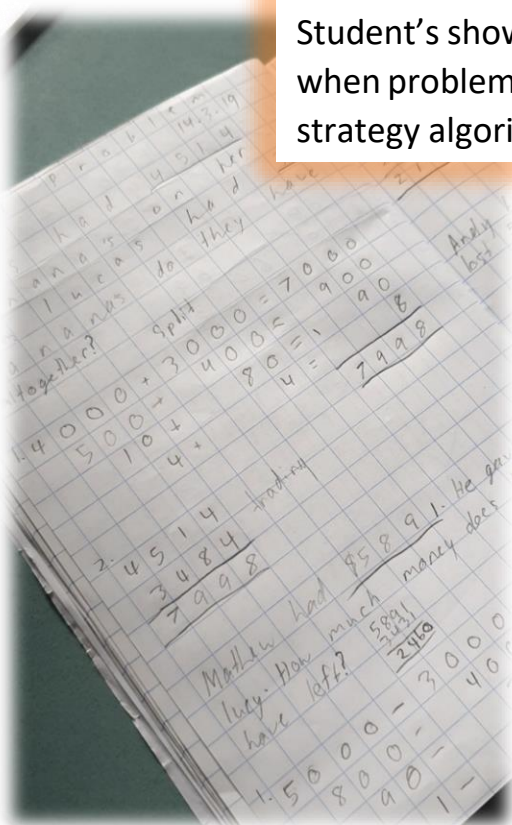 Student's show
when problem
strategy algori
problem
14.3.19
had 4514
on her
lucas had
do they have
altogether?
split
1. 4000 + 3000 = 7000
500 + 400 = 900
10 + 80 = 90
4 + 4 = 8
7998
2. trading
4514
3484
7998
Mathew had $5891. He gav
lucy. How much money does
have left?
5891
2460
1. 5000 - 3000
800 - 40
90 -
1 -
Andy
lost